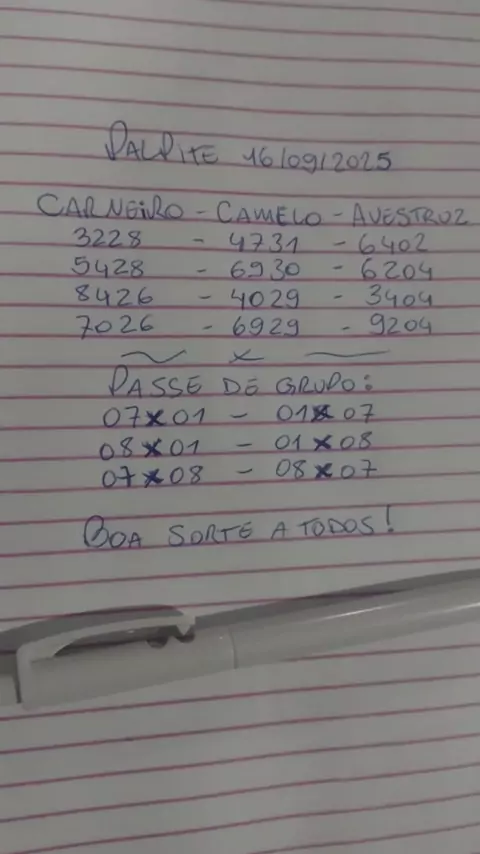 PALPITE 16/09/2025
CARNEIRO - CAMELO - AVESTRUZ
3228 - 4731 - 6402
5428 - 6930 - 6204
8426 - 4029 - 3404
7026 - 6929 - 9204
PASSE DE GRUPO:
07x01 - 01x07
08x01 - 01x08
07x08 - 08x07
BOA SORTE A TODOS!